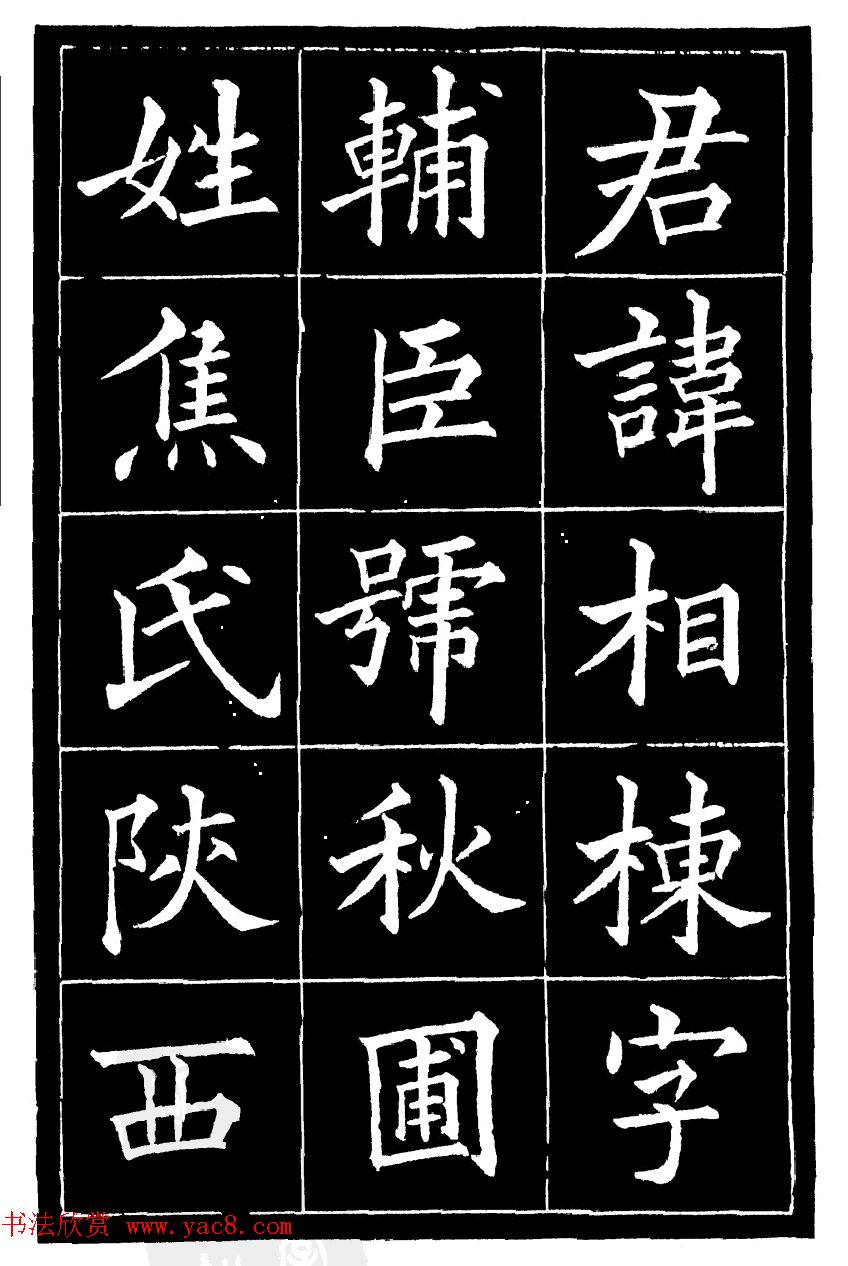 君諱相棟字
輔臣號秋圃
姓焦氏陝西
书法欣赏 www.yac8.com